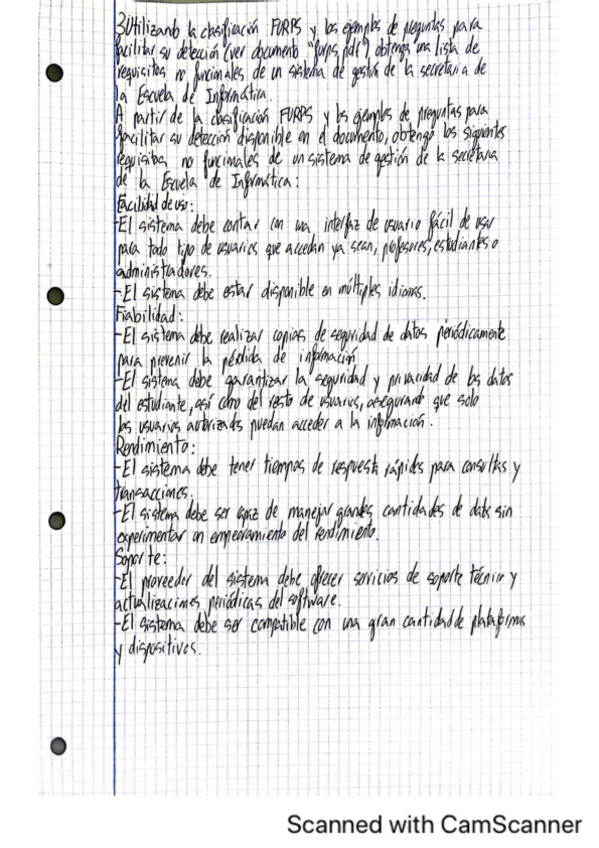 3) Utilizando la clasificación FURPS y los ejemplos de preguntas para
facilitar su detección (ver documento "furps.pdf") obtenga una lista de
requisitos no funcionales de un sistema de gestión de la secretaria de
la Escuela de Informática.
A partir de la clasificación FURPS y los ejemplos de preguntas para
facilitar su detección disponible en el documento, obtengo los siguientes
requisitos no funcionales de un sistema de gestión de la secretaria
de la Escuela de Informática:
Facilidad de uso:
-El sistema debe contar con una interfaz de usuario fácil de usar
para todo tipo de usuarios que accedan ya sean, profesores, estudiantes o
administradores.
-El sistema debe estar disponible en múltiples idiomas.
Fiabilidad:
-El sistema debe realizar copias de seguridad de datos periódicamente
para prevenir la pérdida de información
-El sistema debe garantizar la seguridad y privacidad de los datos
del estudiante, así como del resto de usuarios, asegurando que solo
los usuarios autorizados puedan acceder a la información.
Rendimiento:
-El sistema debe tener tiempos de respuesta rápidos para consultas y
transacciones.
-El sistema debe ser capaz de manejar grandes cantidades de datos sin
experimentar un empeoramiento del rendimiento.
Soporte:
-El proveedor del sistema debe ofrecer servicios de soporte técnico y
actualizaciones periódicas del software.
-El sistema debe ser compatible con una gran cantidad de plataformas
y dispositivos.
Scanned with CamScanner